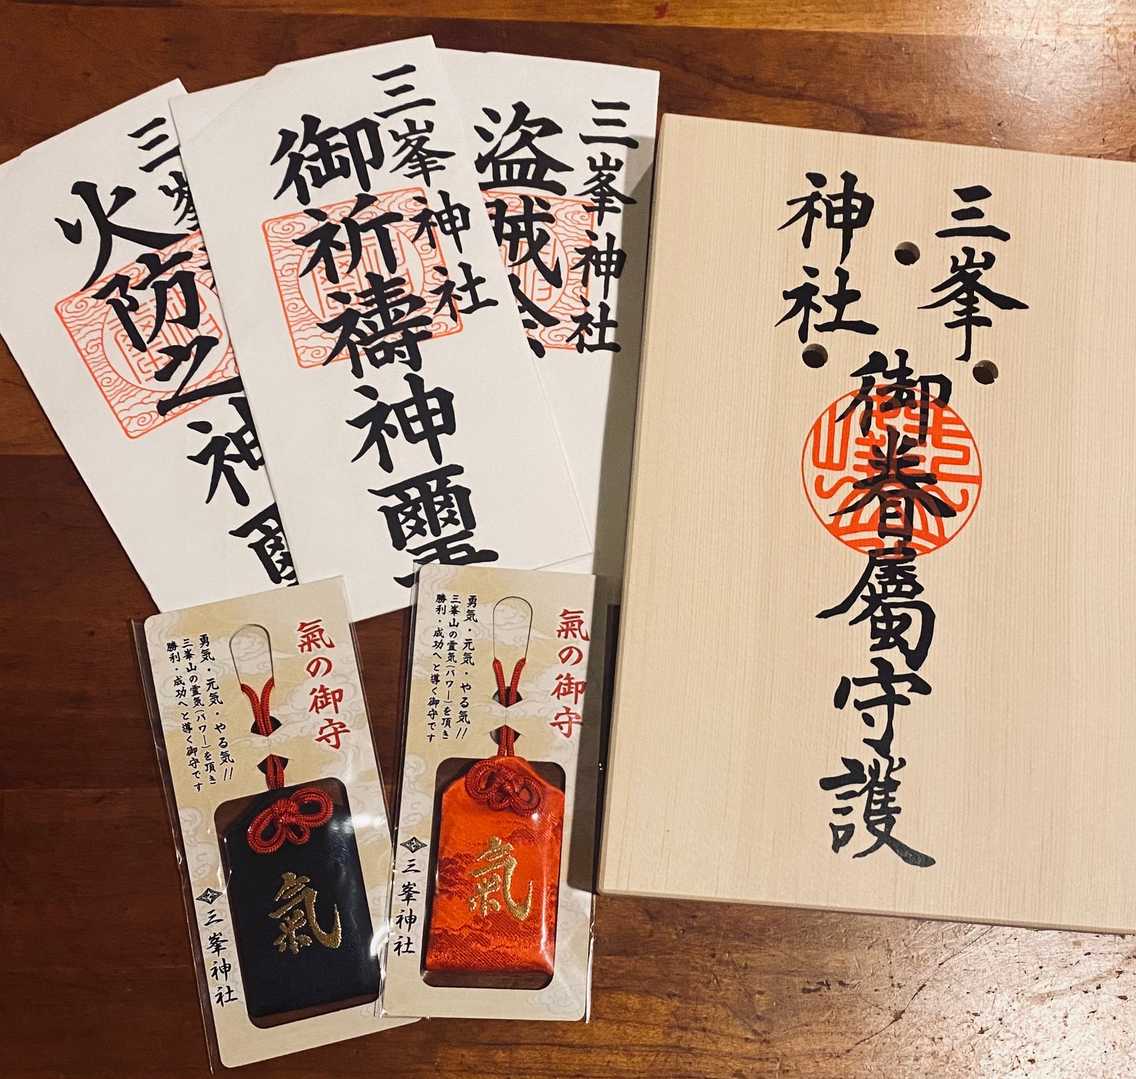 三峯神社
火防之神璽
三峯神社
御祈禱神璽
三峯神社
盗賊除
三峯
神社
御眷屬守護
氣の御守
勇気・元気・やる気!!
三峯山の霊気(パワー)を頂き
勝利・成功へと導く御守です
氣
三峯神社
氣の御守
勇気・元気・やる気!!
三峯山の霊気(パワー)を頂き
勝利・成功へと導く御守です
氣
三峯神社